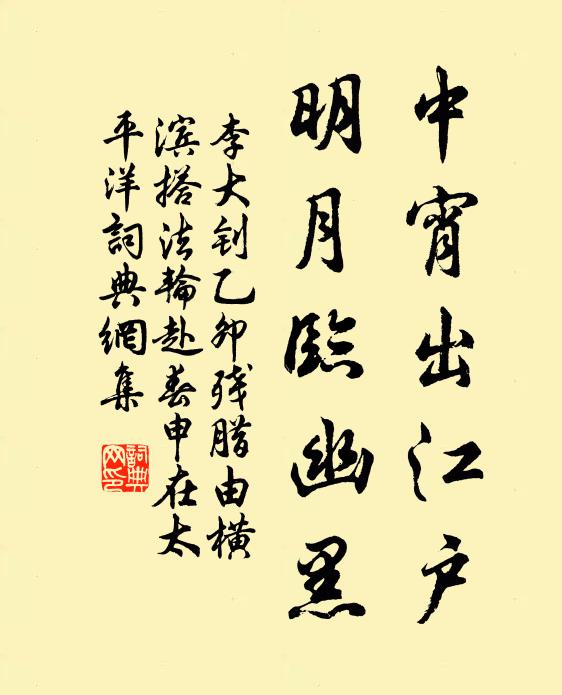 中宵出江户
明月臨幽黑
李大钊乙卯残腊由横
滨搭法輪赴春申在太
平洋詞典網集
詞典
网印